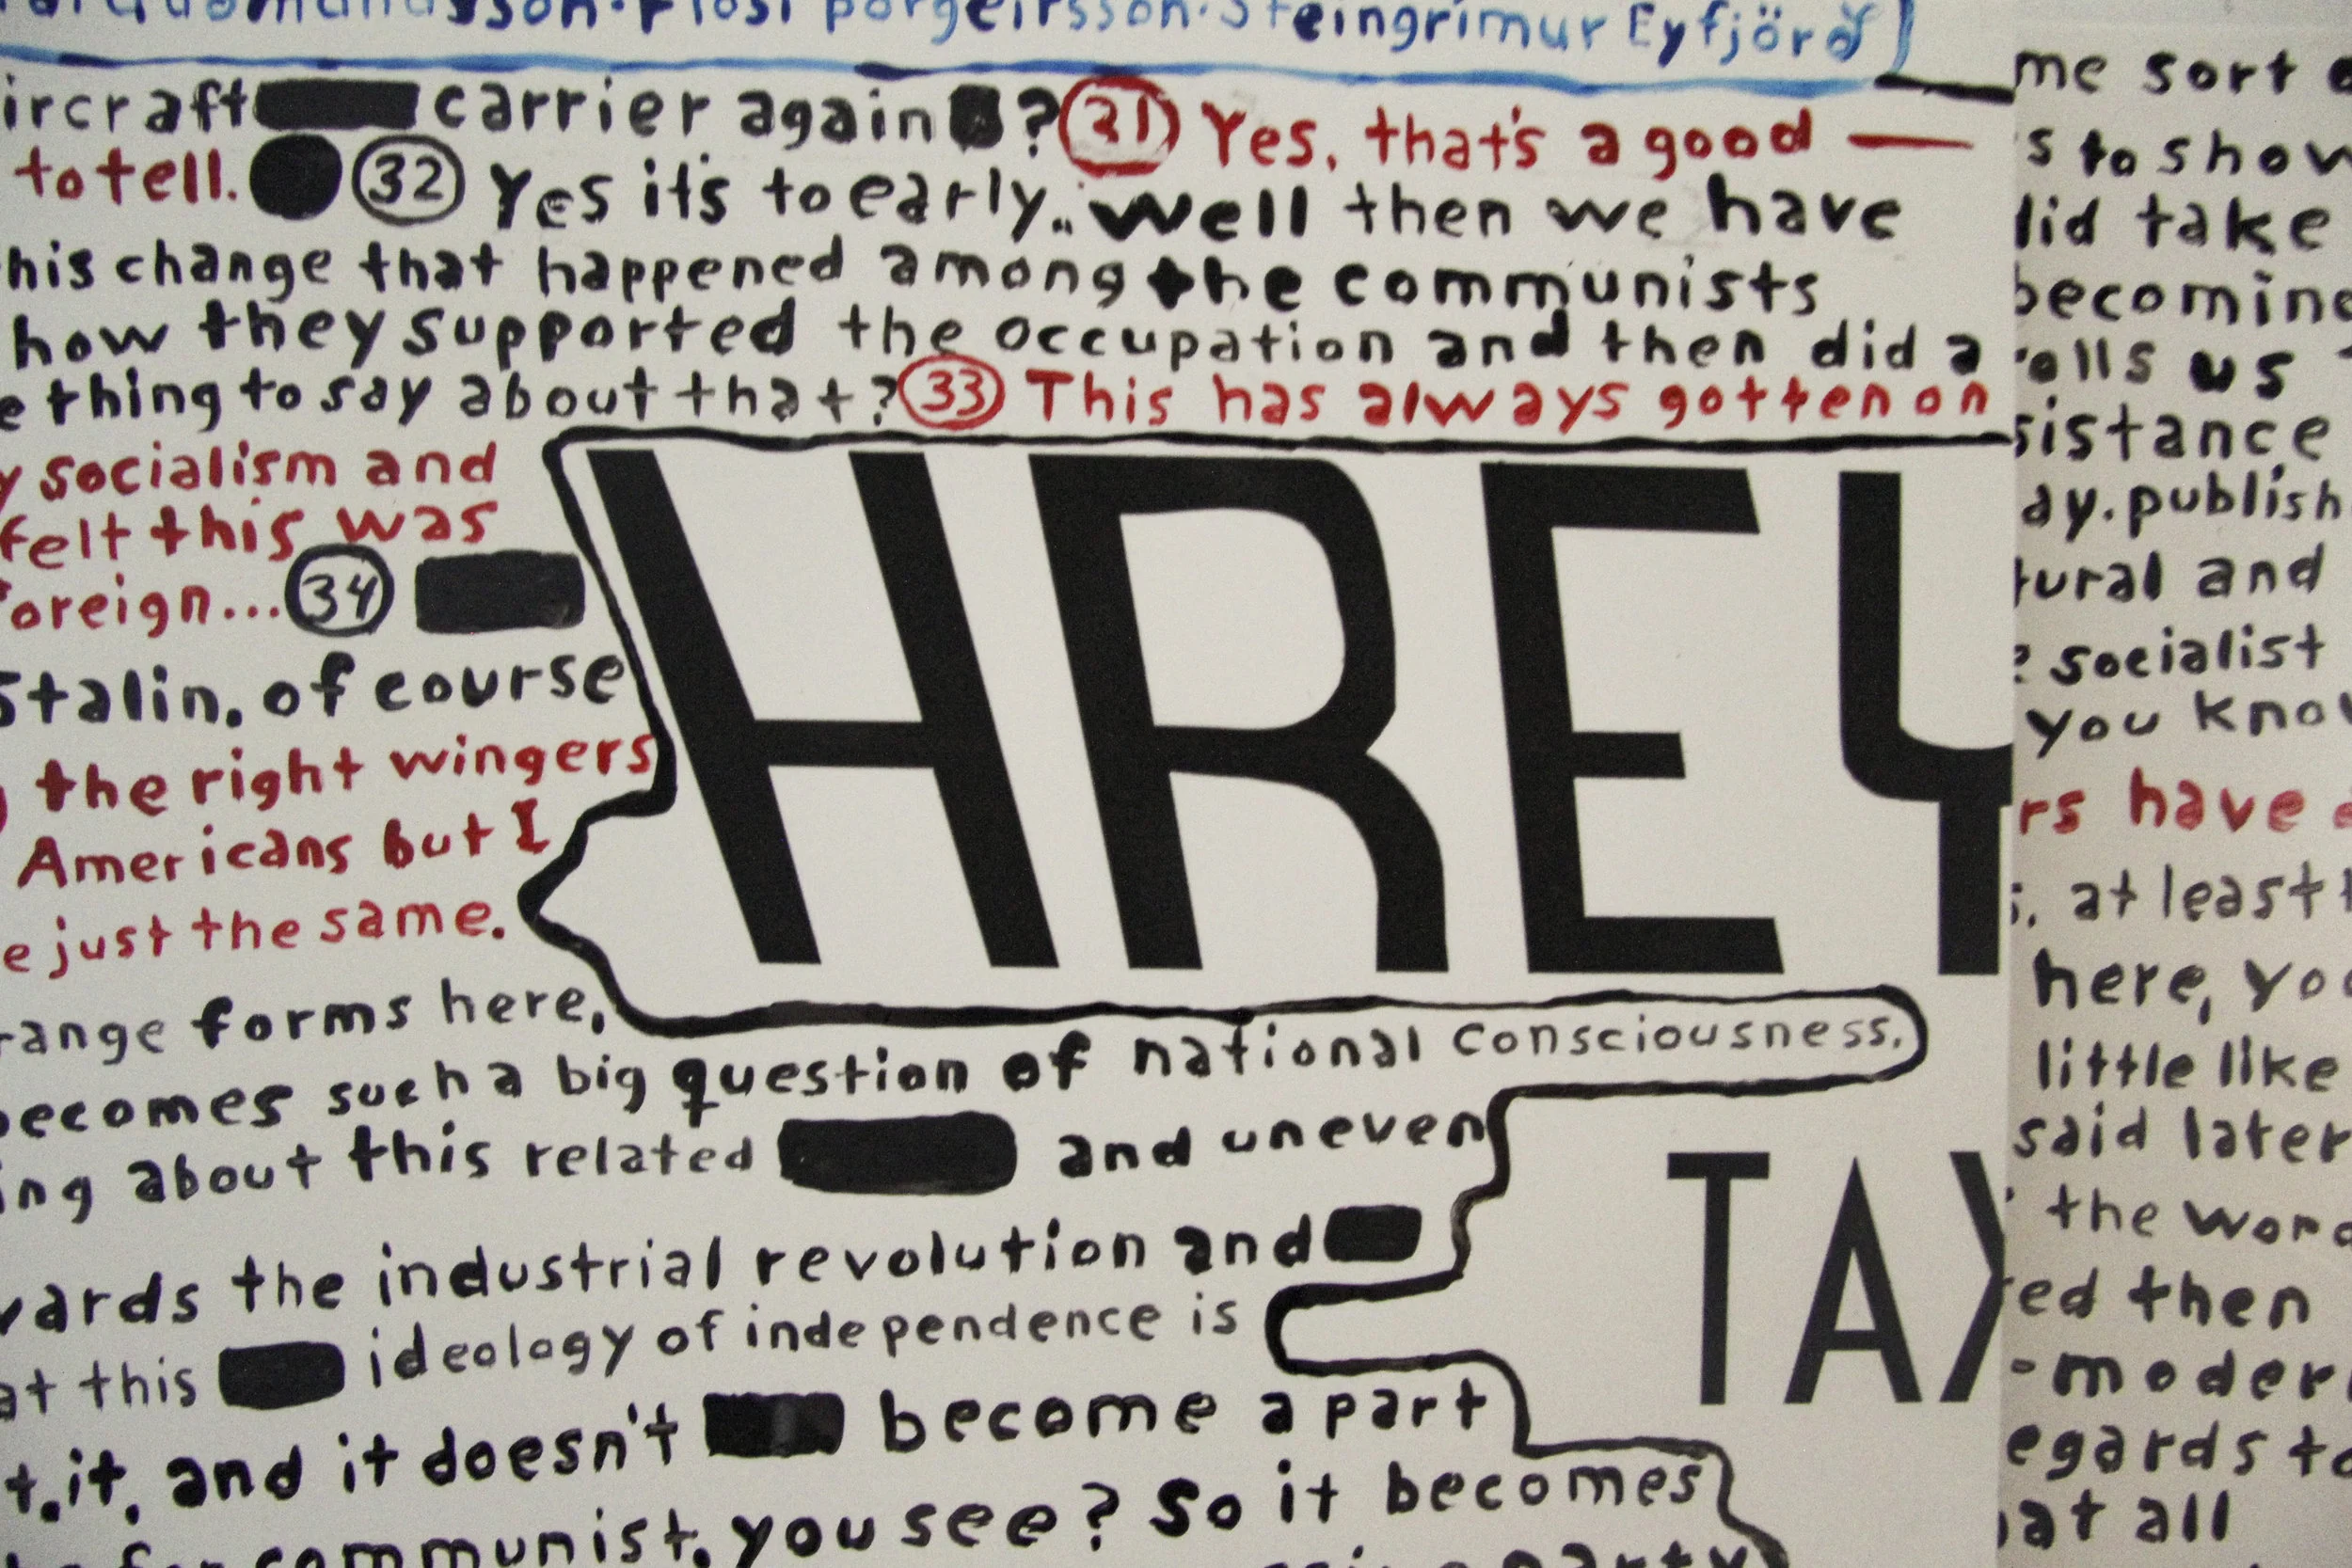 Flosi Þorgeirsson. Steingrímur Eyfjörð
carrier again ? 31 Yes, that's a good —
to tell. 32 Yes it's to early.. Well then we have
change that happened among the communists
how they supported the occupation and then did a
thing to say about that? 33 This has always gotten on
socialism and
felt this was
34
Stalin, of course
the right wingers
Americans but I
just the same.
forms here,
becomes such a big question of national consciousness.
about this related and uneven
the industrial revolution and
this ideology of independence is
it, and it doesn't become a part
communist, you see? So it becomes
party
HREY
TAX
me sort
to show
take
becoming
us
publish
and
socialist
you know
have
at least
here, you
little like
said later
the word
then
all